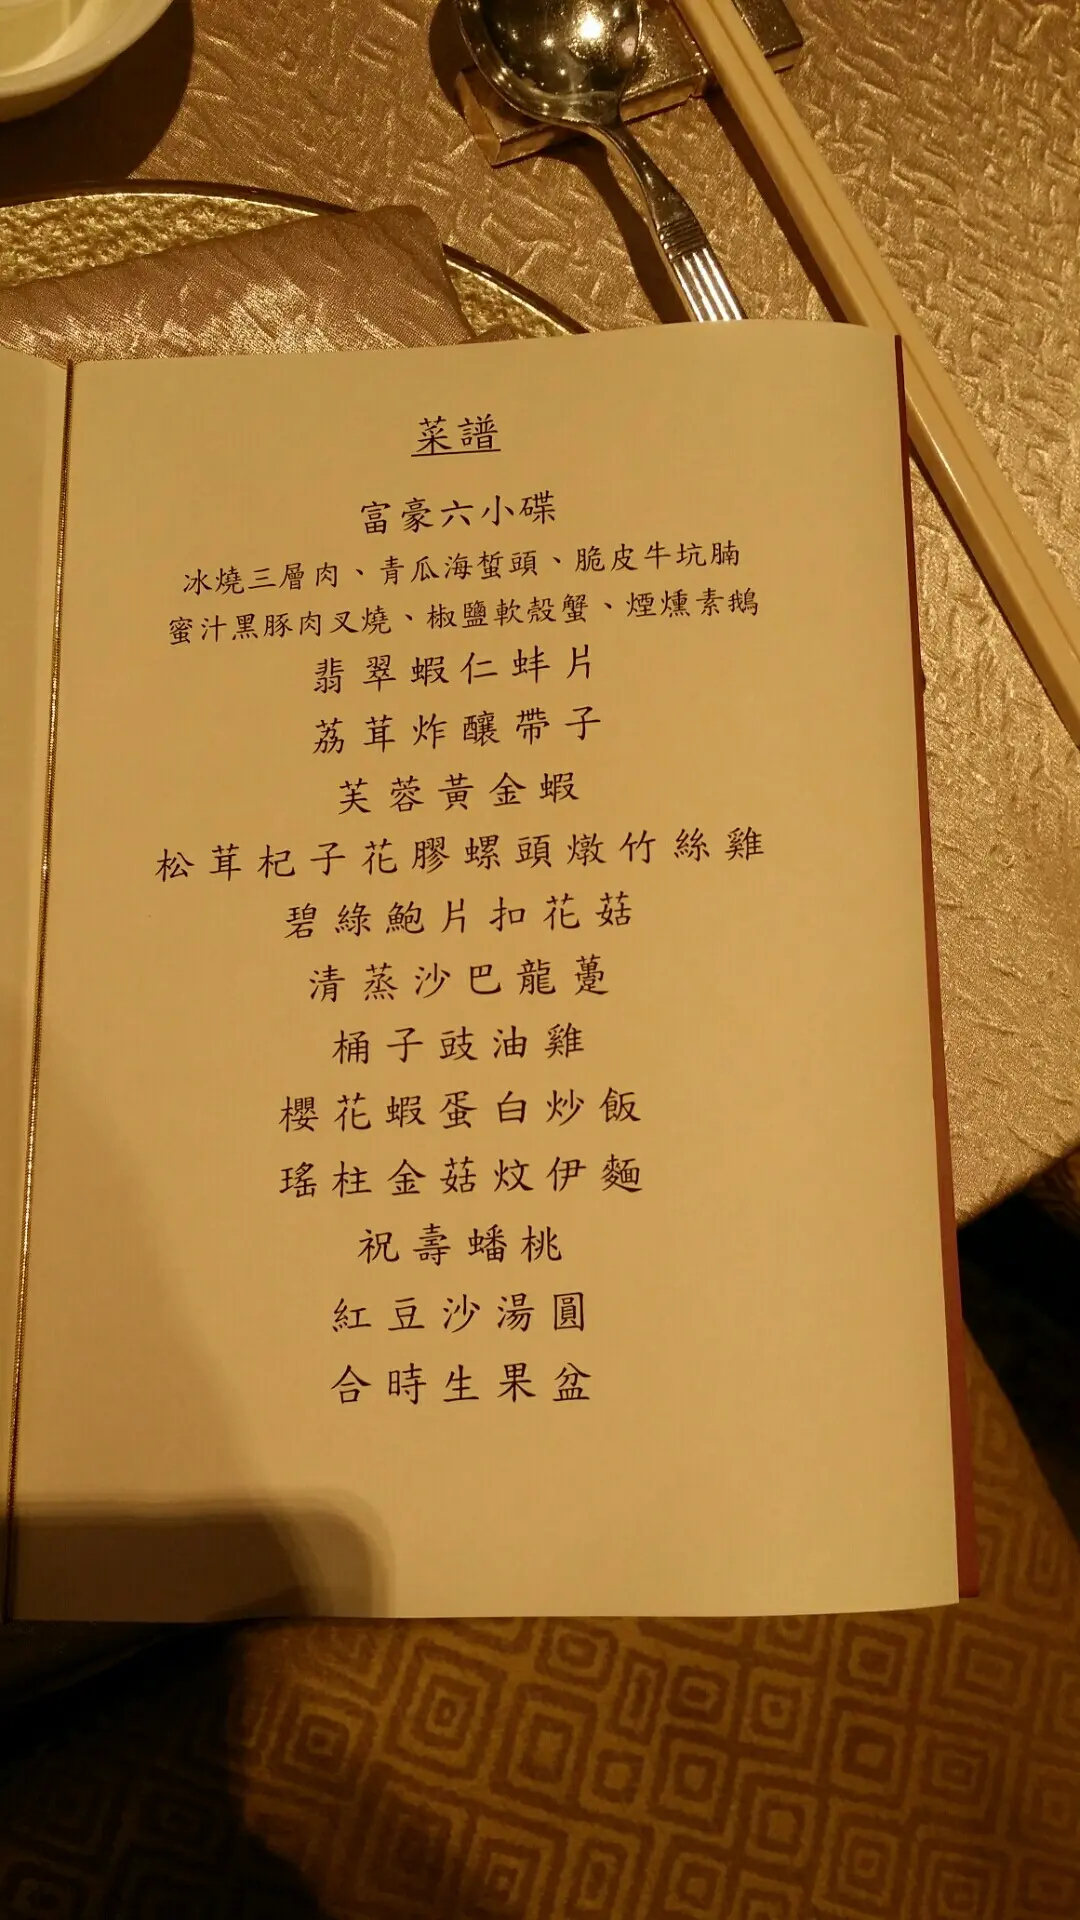 菜譜
富豪六小碟
冰燒三層肉、青瓜海蜇頭、脆皮牛坑腩
蜜汁黑豚肉叉燒、椒鹽軟殼蟹、煙燻素鵝
翡翠蝦仁蚌片
荔茸炸釀帶子
芙蓉黃金蝦
松茸杞子花膠螺頭燉竹絲雞
碧綠鮑片扣花菇
清蒸沙巴龍躉
桶子豉油雞
櫻花蝦蛋白炒飯
瑤柱金菇炆伊麵
祝壽蟠桃
紅豆沙湯圓
合時生果盆